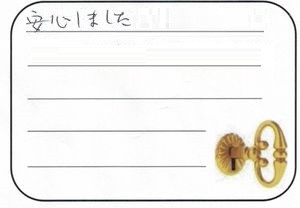 安心しました